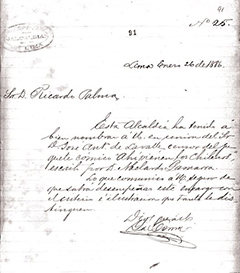 91
Nº 25.
91
Lima Enero 26 de 1886.
Sr. D. Ricardo Palma.
Esta Alcaldía ha tenido á
bien nombrar á U. en union del Sr.
D. José Ant. de Lavalle censor del ju-
guete cómico Ahi vienen los Chilenos,
escrito por D. Abelardo Gamarra.
Lo que comunico á U. seguro de
que sabrá desempeñar este encargo con
el criterio é ilustracion que tanto le dis-
tinguen.
Dios guarde á U.